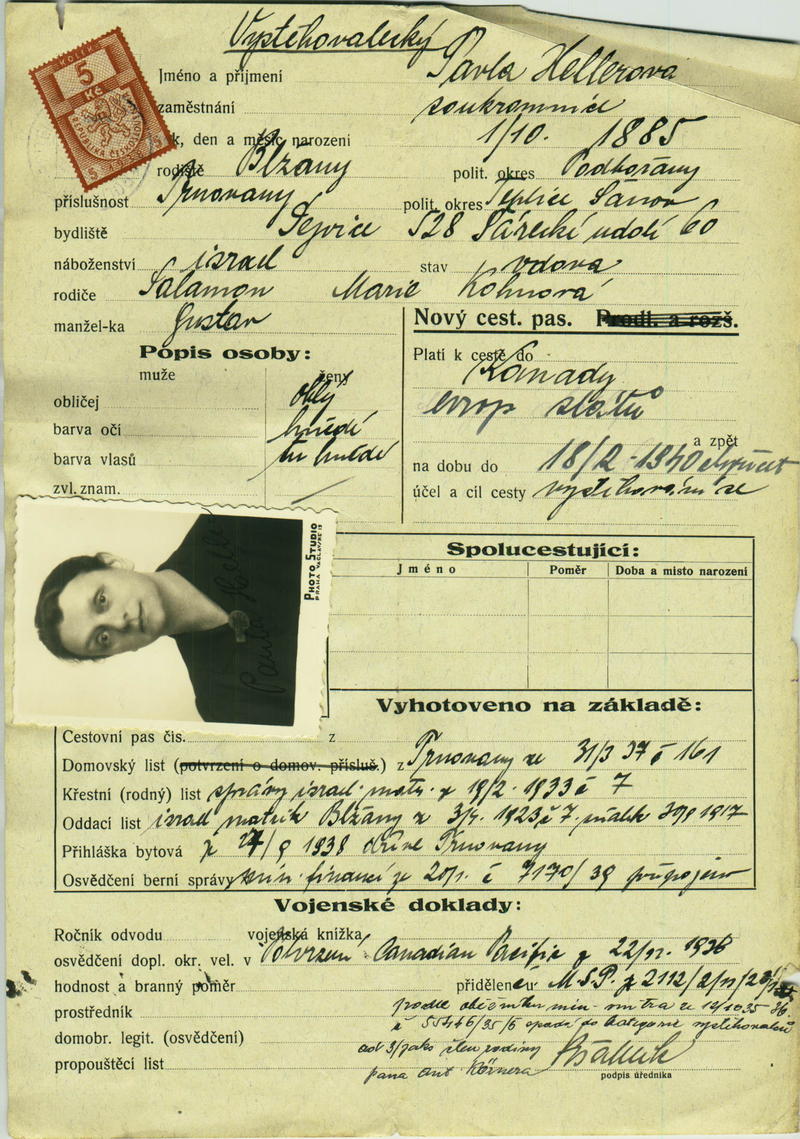 Vystěhovalecký
KOLEK
5
Kč
REPUBLIKA ČESKOSLOVENSKÁ
Jméno a příjmení Pavla Hellerova
zaměstnání soukromnice
k, den a měsíc narození 1/10. 1885
rodiště Blžany polit. okres Podbořany
příslušnost Trnovany polit. okres Teplice Šanov
bydliště Dejvice 528 Šárecké udolí 60
náboženství israel stav vdova
rodiče Salamon Marie Kohnová
manžel-ka Gustav
Nový cest. pas. Prodl. a rozš.
Popis osoby:
muže ženy
obličej oblý
barva očí hnědé
barva vlasů tm hnědé
zvl. znam.
Platí k cestě do Kanady
evrop států
a zpět
na dobu do 18/2 - 1940
účel a cíl cesty vystěhování se
PHOTO STUDIO
Paula Heller
Spolucestující:
Jméno Poměr Doba a místo narození
Vyhotoveno na základě:
Cestovní pas čís. z
Domovský list (potvrzení o domov. přísluš.) z Trnovany ze 31/3 37 č 161
Křestní (rodný) list správy israel. matr. z 19/2 - 1933 č 7
Oddací list israel matrik Blžany z 1923 č 7, 1917
Přihláška bytová z 1938 dříve Trnovany
Osvědčení berní správy min. financí ze č 7170/39 připojeno
Vojenské doklady:
Ročník odvodu vojenská knížka
osvědčení dopl. okr. vel. v Potvrzení Canadian Pacific z 1938
hodnost a branný poměr přidělen M.S.P. z 2112/2/11/
prostředník podle oběžníku min. vnitra ze 12/10 35
č 55446/35/6 spadá do kategorie vystěhovalců
domobr. legit. (osvědčení) ad 3/ jako člen rodiny
propouštěcí list pana Ant Körnera
podpis úředníka